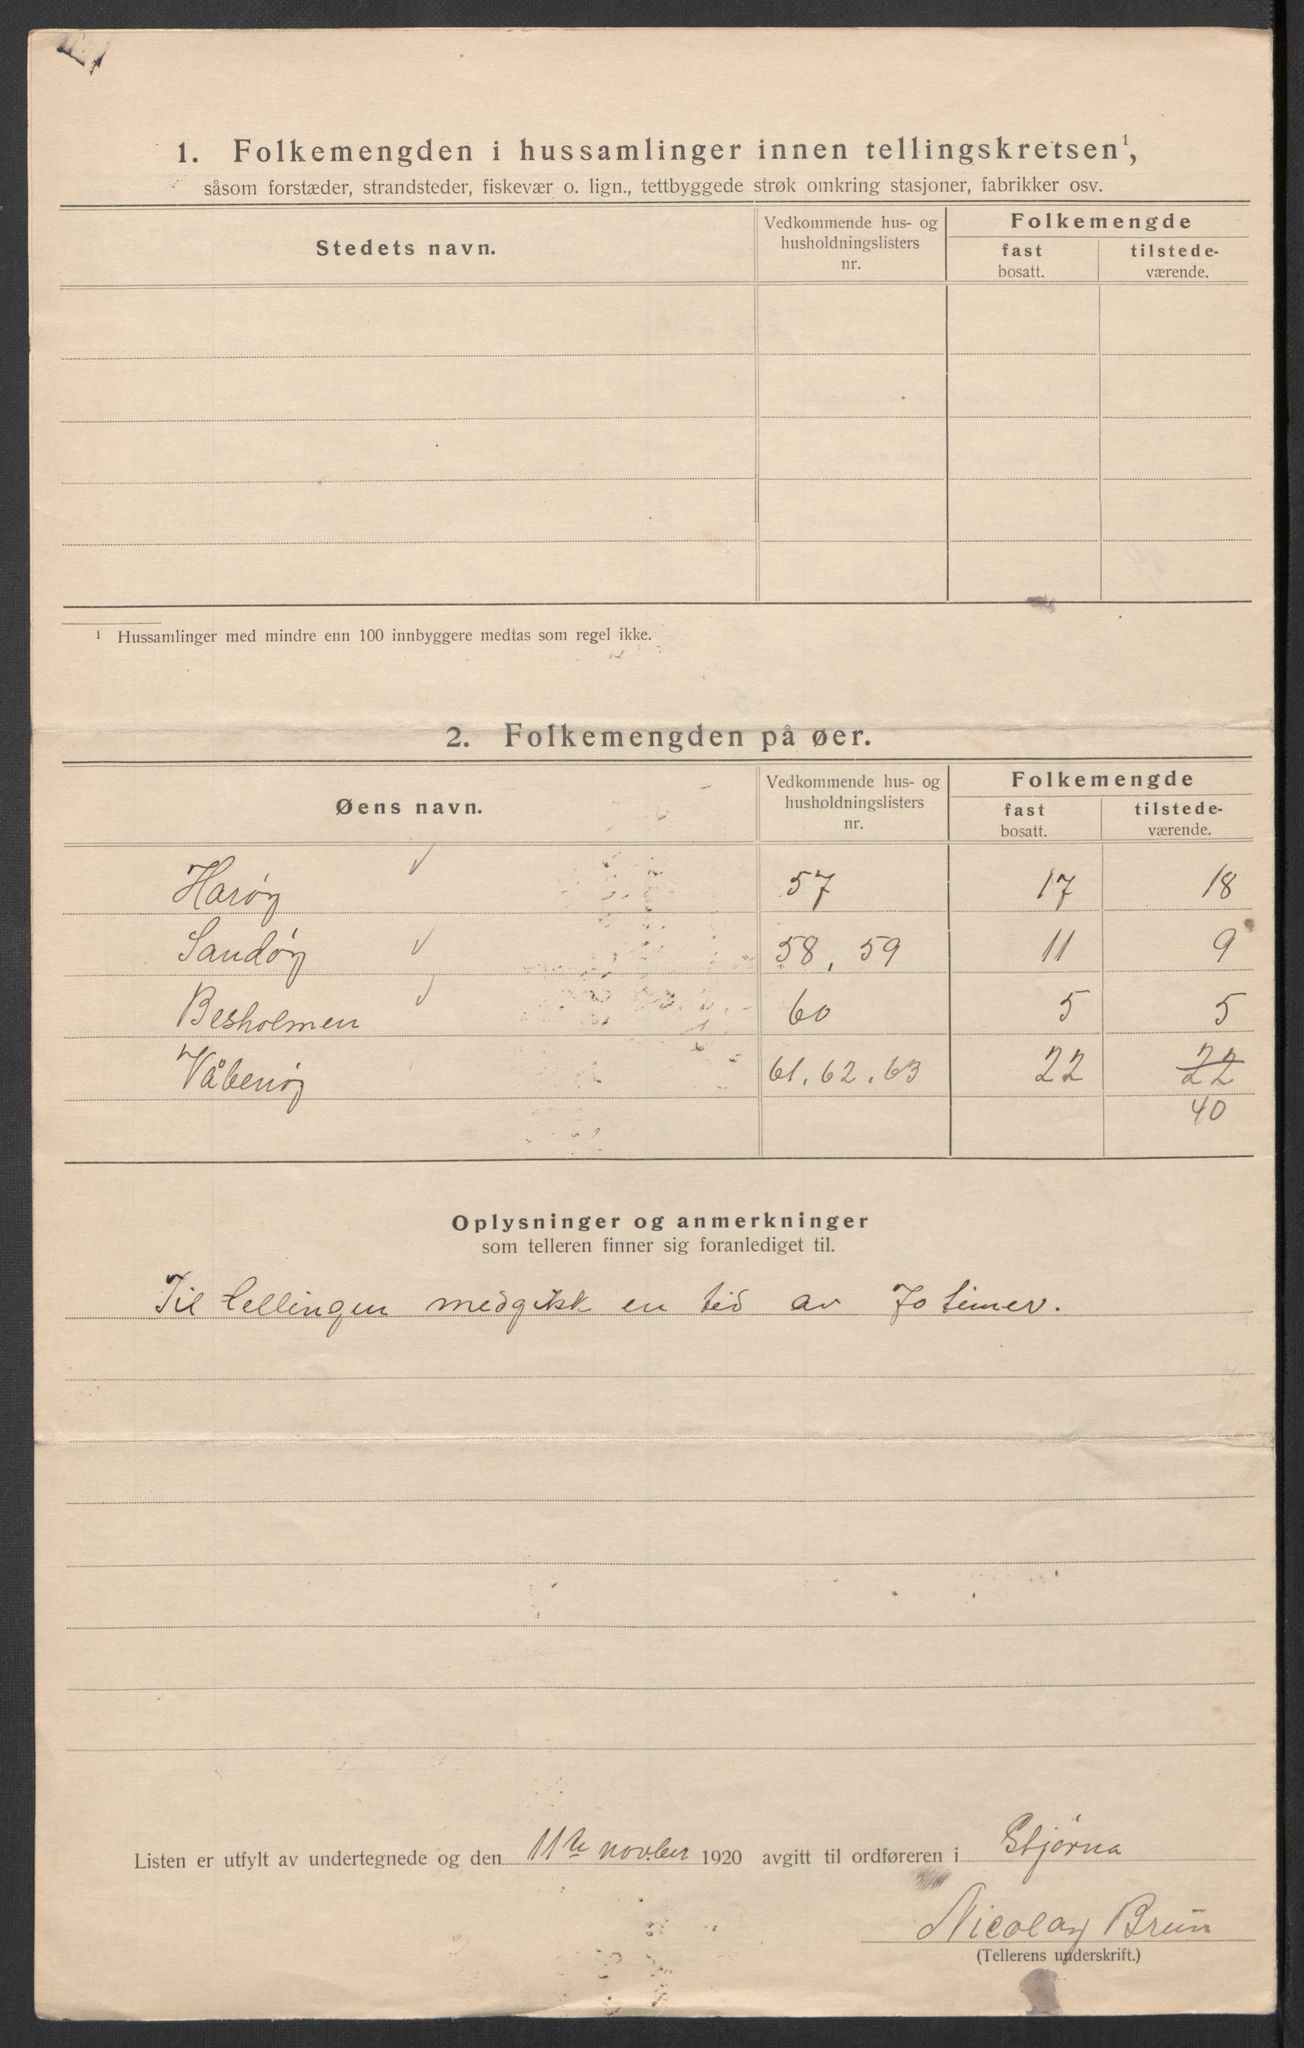 1. Folkemengden i hussamlinger innen tellingskretsen¹,
såsom forstæder, strandsteder, fiskevær o. lign., tettbyggede strøk omkring stasjoner, fabrikker osv.
Stedets navn.
Vedkommende hus- og husholdningslisters nr.
Folkemengde
fast bosatt.
tilstede-værende.
¹ Hussamlinger med mindre enn 100 innbyggere medtas som regel ikke.
2. Folkemengden på øer.
Øens navn.
Vedkommende hus- og husholdningslisters nr.
Folkemengde
fast bosatt.
tilstede-værende.
Harøy 57 17 18
Sandøy 58, 59 11 9
Besholmen 60 5 5
Våbenøy 61, 62, 63 22 22
40
Oplysninger og anmerkninger
som telleren finner sig foranlediget til.
Til tellingen medgikk en tid av 70 timer.
Listen er utfylt av undertegnede og den 11te novber 1920 avgitt til ordføreren i Stjørna
Nicolay Brun
(Tellerens underskrift.)